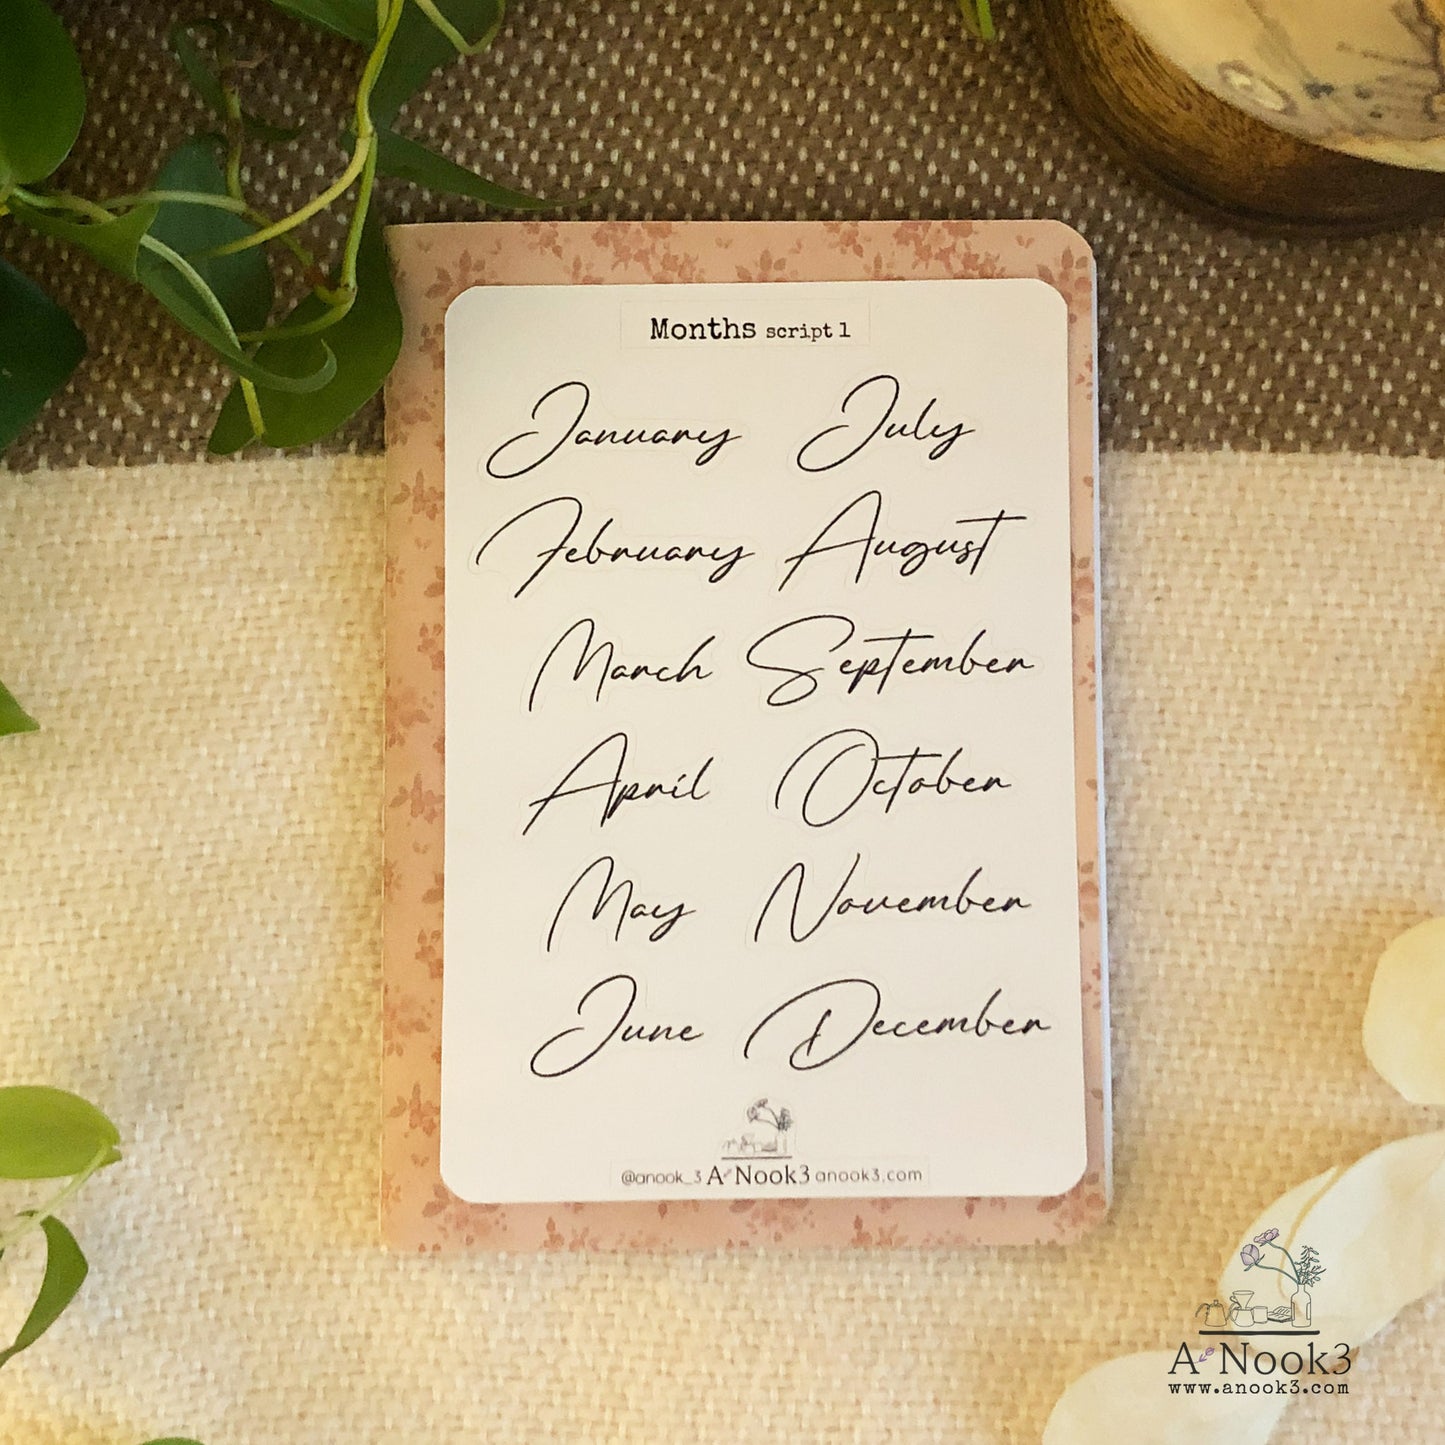 Months script 1
January
February
March
April
May
June
July
August
September
October
November
December
@anook_3 A Nook3 anook3.com
A Nook3
www.anook3.com